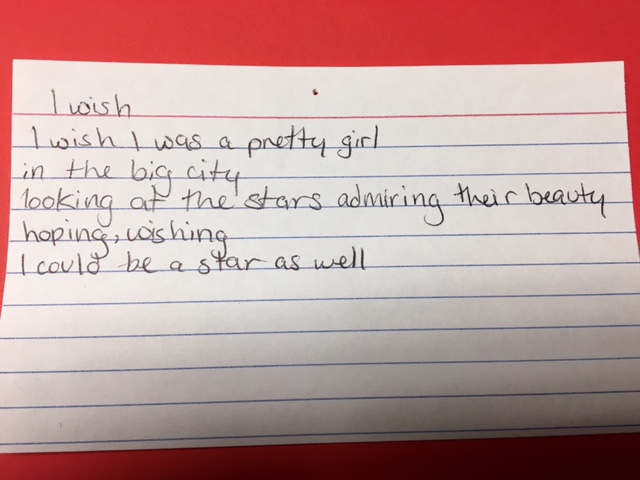 I wish
I wish I was a pretty girl
in the big city
looking at the stars admiring their beauty
hoping, wishing
I could be a star as well